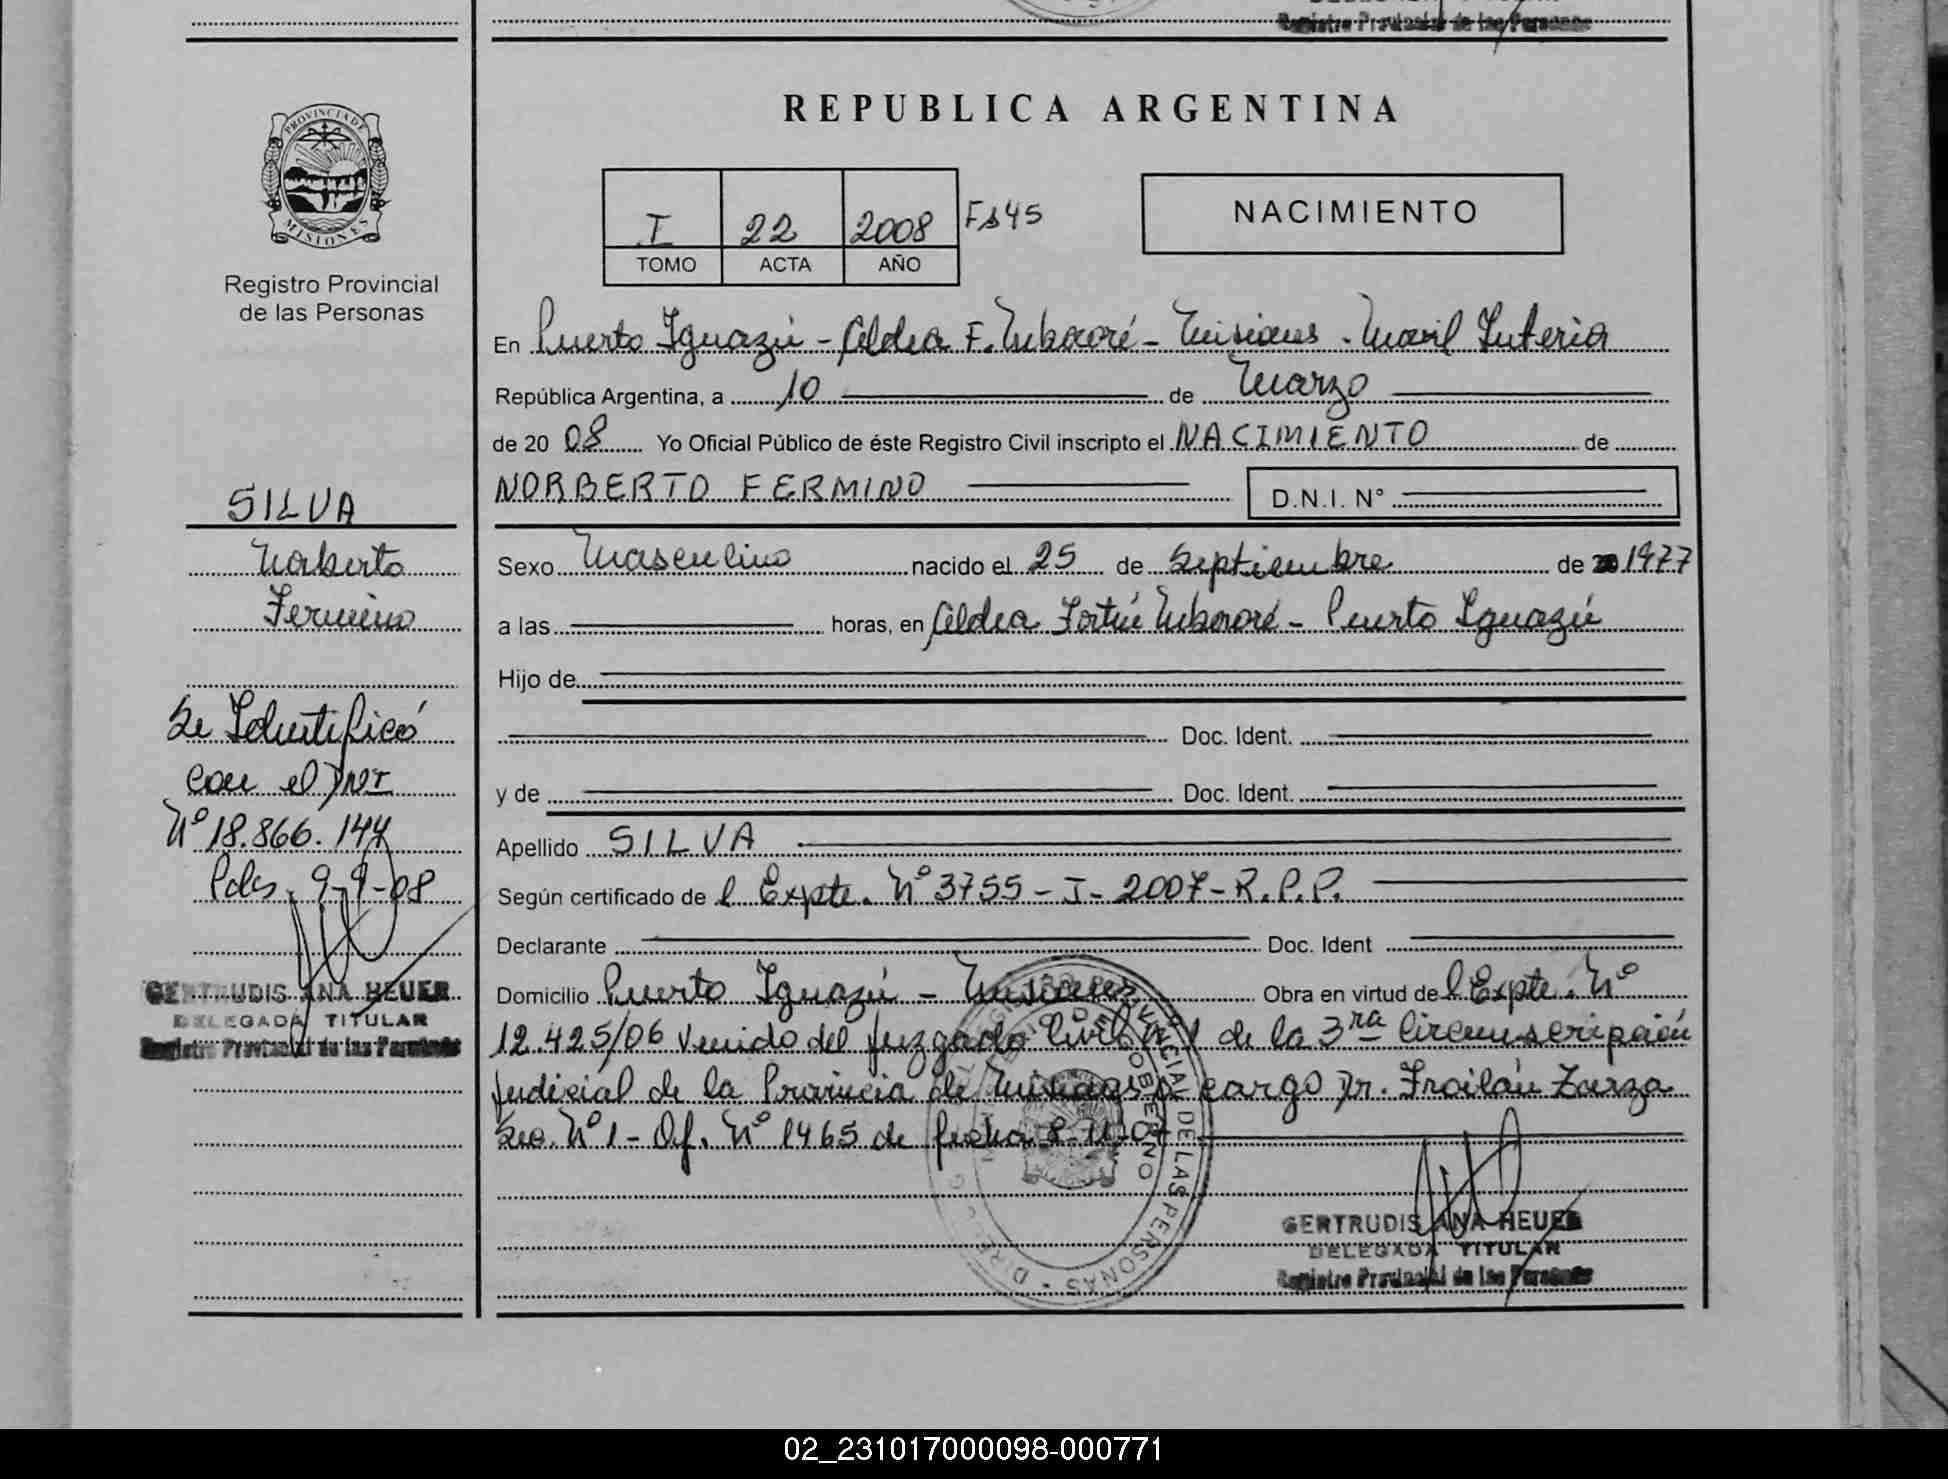 Registro Provincial de las Personas
REPUBLICA ARGENTINA
PROVINCIA DE
MISIONES
Registro Provincial
de las Personas
I 22 2008 Fs45
TOMO ACTA AÑO
NACIMIENTO
En Puerto Iguazú - Aldea F. Mbororé - Misiones - Movil Interia
República Argentina, a 10 de Marzo
de 20 08 Yo Oficial Público de éste Registro Civil inscripto el NACIMIENTO de
NORBERTO FERMINO D.N.I. N°
Sexo Masculino nacido el 25 de Septiembre de 1977
a las horas, en Aldea Fortín Mbororé - Puerto Iguazú
Hijo de
Doc. Ident.
y de Doc. Ident.
Apellido SILVA
Según certificado de l Expte. Nº 3755 - I - 2007 - R.P.P.
Declarante Doc. Ident
Domicilio Puerto Iguazú - Misiones Obra en virtud de l Expte. Nº
12.425/06 venido del Juzgado Civil Nº 1 de la 3ra Circunscripción
Judicial de la Provincia de Misiones a cargo Dr. Froilán Zarza
Sec. Nº 1 - Of. Nº 1465 de fecha 8-11-07
GERTRUDIS ANA HEUER
DELEGADA TITULAR
Registro Provincial de las Personas
SILVA
Norberto
Fermino
Se Identificó
con el DNI
Nº 18.866.144
Pdas. 9-9-08
GERTRUDIS ANA HEUER
DELEGADA TITULAR
Registro Provincial de las Personas
02_231017000098-000771